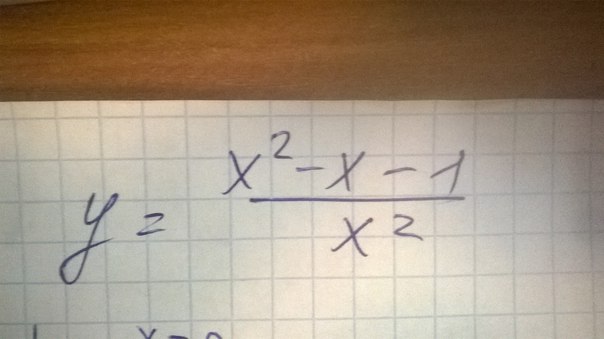 y = (x² - x - 1) / x²